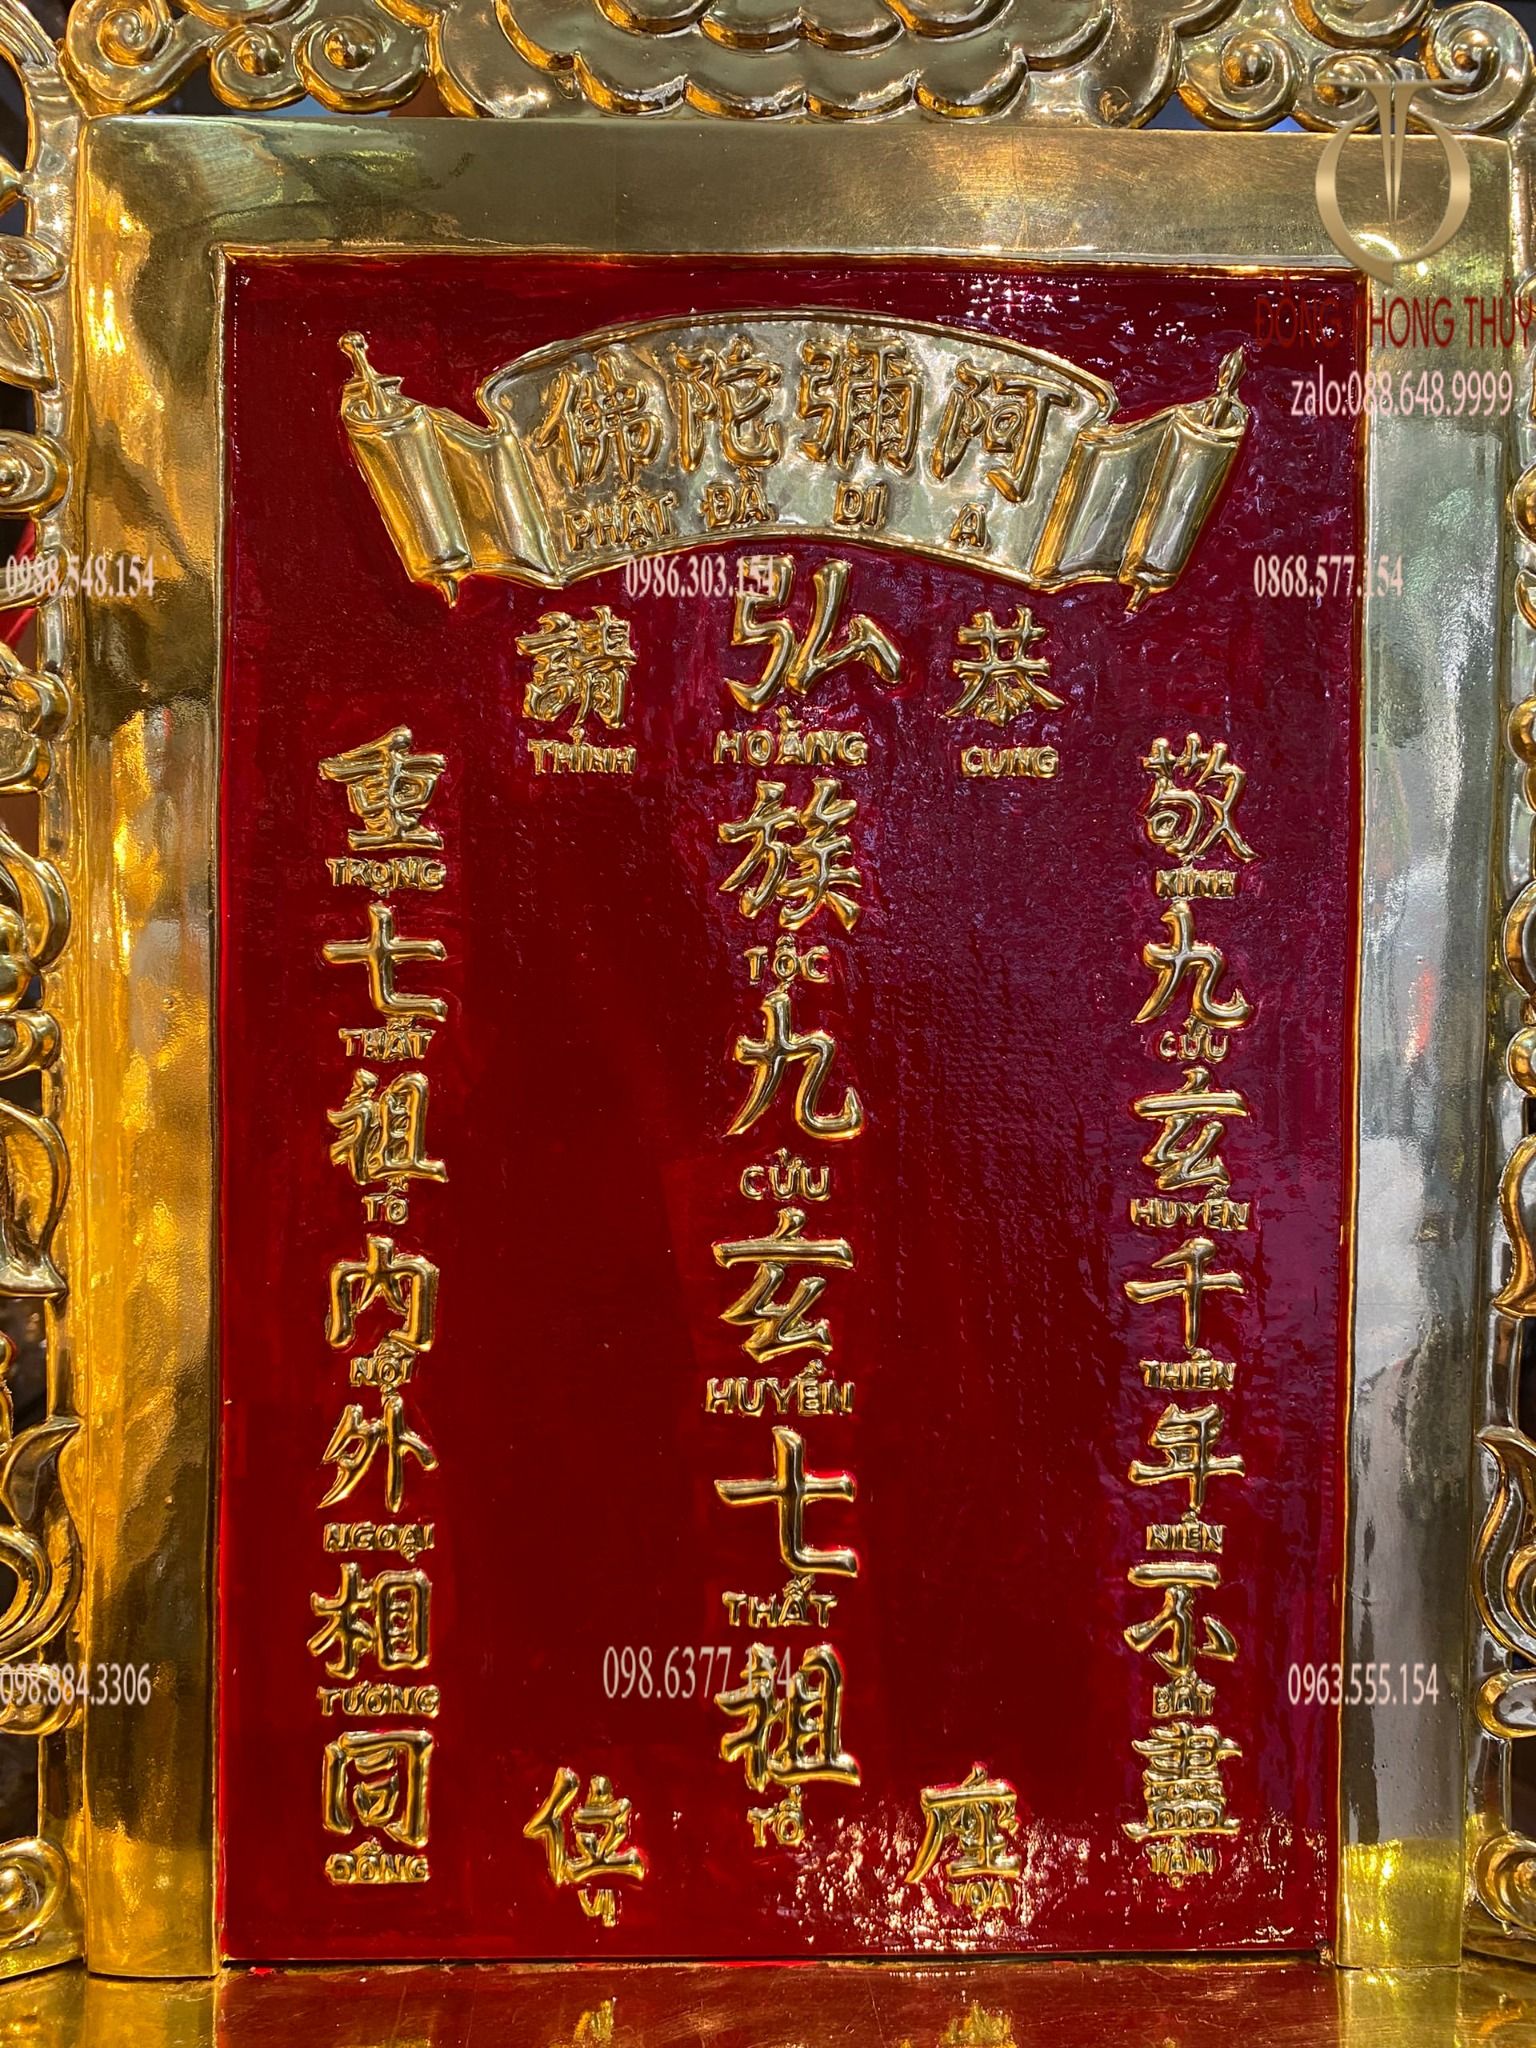 阿彌陀佛
A DI ĐÀ PHẬT
恭請
CUNG THỈNH
敬九玄千年不盡
KÍNH CỬU HUYỀN THIÊN NIÊN BẤT TẬN
弘族九玄七祖
HOẰNG TỘC CỬU HUYỀN THẤT TỔ
重七祖內外相同
TRỌNG THẤT TỔ NỘI NGOẠI TƯƠNG ĐỒNG
座位
TỌA VỊ
ĐỒNG PHONG THỦY
zalo:088.648.9999
0988.548.154
0986.303.154
0868.577.154
098.884.3306
098.6377.154
0963.555.154